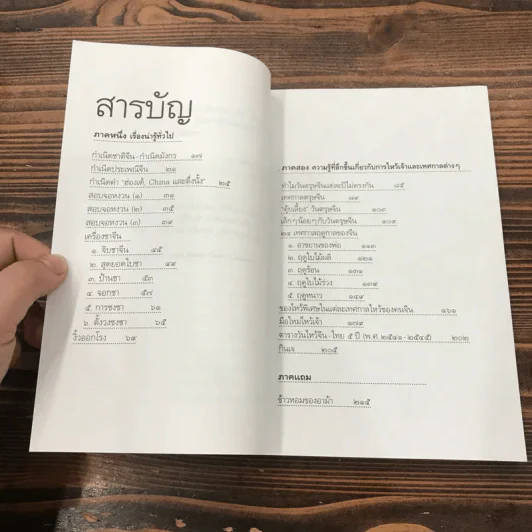 สารบัญ
ภาคหนึ่ง เรื่องน่ารู้ทั่วไป
กำเนิดชาติจีน-กำเนิดมังกร ๑๗
กำเนิดประเพณีจีน ๒๑
กำเนิดคำ "ฮ่องเต้, China และตึ่งนั้ง" ๒๕
สอบจอหงวน (๑) ๓๑
สอบจอหงวน (๒) ๓๕
สอบจอหงวน (๓) ๓๙
เครื่องชาจีน
๑. จิบชาจีน ๔๕
๒. สุดยอดใบชา ๔๙
๓. ป้านชา ๕๓
๔. จอกชา ๕๗
๕. การชงชา ๖๑
๖. ตั้งวงชงชา ๖๕
งิ้วออกโรง ๖๙
ภาคสอง ความรู้ที่ลึกขึ้นเกี่ยวกับการไหว้เจ้าและเทศกาลต่างๆ
ทำไมวันตรุษจีนแต่ละปีไม่ตรงกัน ๘๕
เทศกาลตรุษจีน ๘๙
"ตุ้บเลี้ยง" วันตรุษจีน ๑๐๓
เล็กๆน้อยๆกับวันตรุษจีน ๑๐๙
๒๔ เทศกาลฤดูกาลของจีน
๑. อารยานของพ่อ ๑๑๓
๒. ฤดูใบไม้ผลิ ๑๒๑
๓. ฤดูร้อน ๑๓๑
๔. ฤดูใบไม้ร่วง ๑๓๙
๕. ฤดูหนาว ๑๔๙
ของไหว้พิเศษในแต่ละเทศกาลไหว้ของคนจีน ๑๖๑
มือใหม่ไหว้เจ้า ๑๗๙
ตารางวันไหว้จีน-ไทย ๕ ปี (พ.ศ.๒๕๔๑-๒๕๔๕) ๒๐๒
กินเจ ๒๐๕
ภาคแถม
ข้าวหอมของอาม้า ๒๑๕